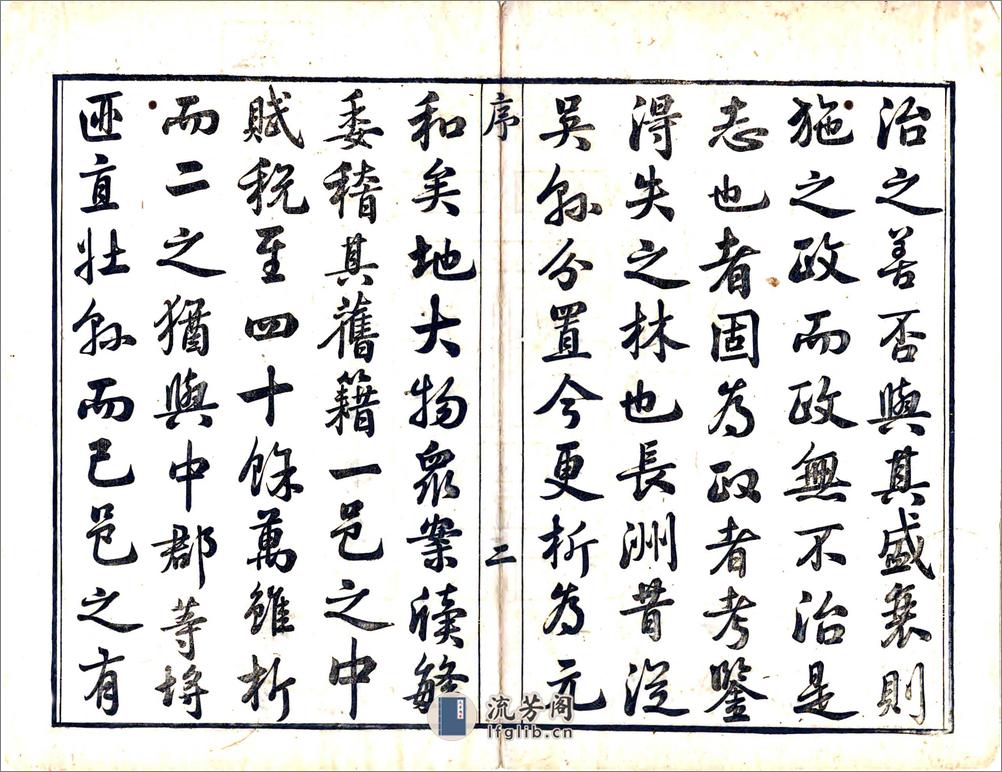 治之善否與其盛衰則
施之政而政無不治是
志也者固為政者考鑒
得失之林也長洲昔從
吳縣分置今更析為元
序
二
和矣地大物眾案牘繁
委稽其舊籍一邑之中
賦稅至四十餘萬雖析
而二之猶與中郡等埒
迺直壯縣而已邑之有
流芳阁
lfglib.cn